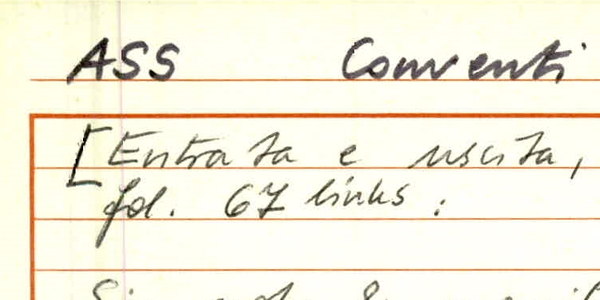 ASS Conventi
[Entrata e uscita,
fol. 67 links :